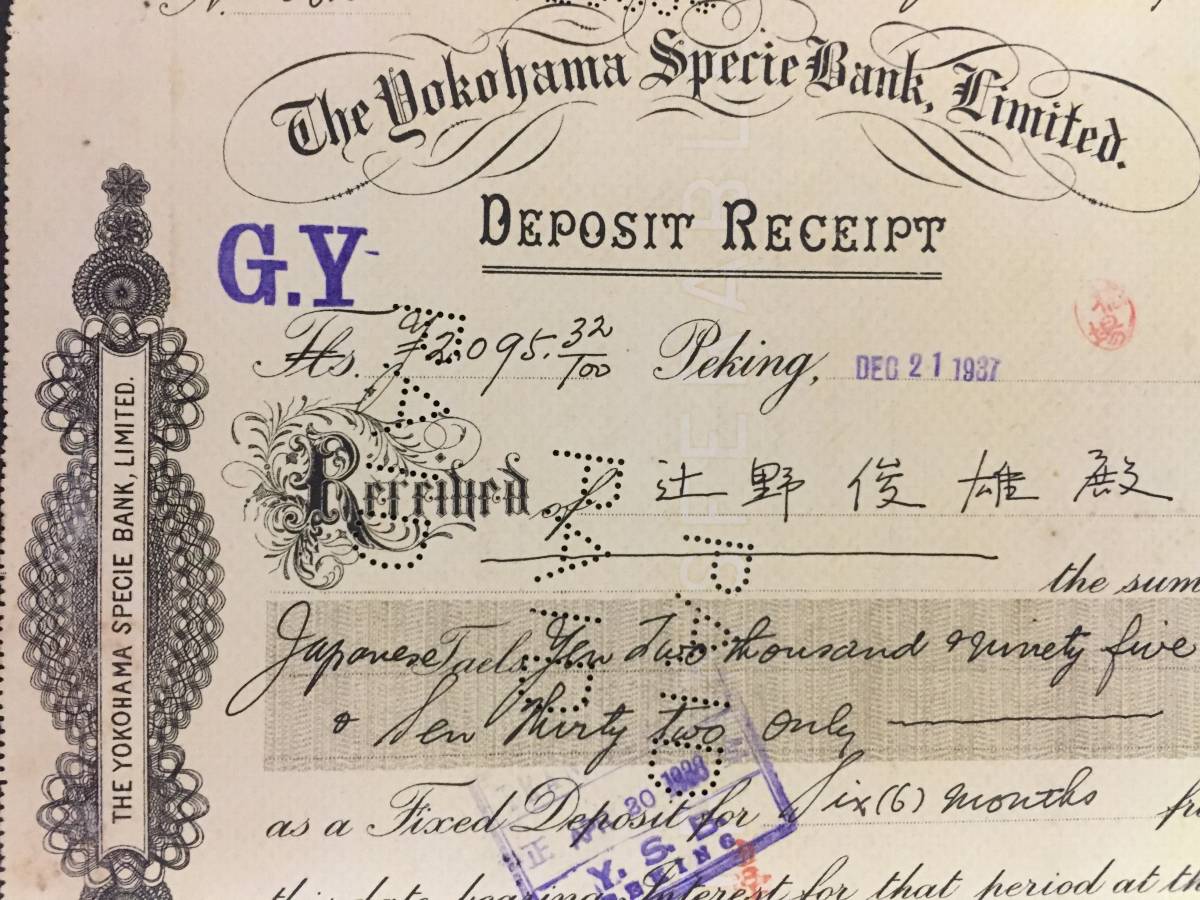 The Yokohama Specie Bank, Limited.
DEPOSIT RECEIPT
G.Y
Tls. ¥2,095.32/100 Peking, DEC 21 1937
Received of 辻野俊雄殿
the sum
Japanese Taels Yen Two thousand & ninety five
& Sen thirty two only
as a Fixed Deposit for Six (6) months
this date bearing Interest for that period at the
Y. S. B.
PEKING
THE YOKOHAMA SPECIE BANK, LIMITED.